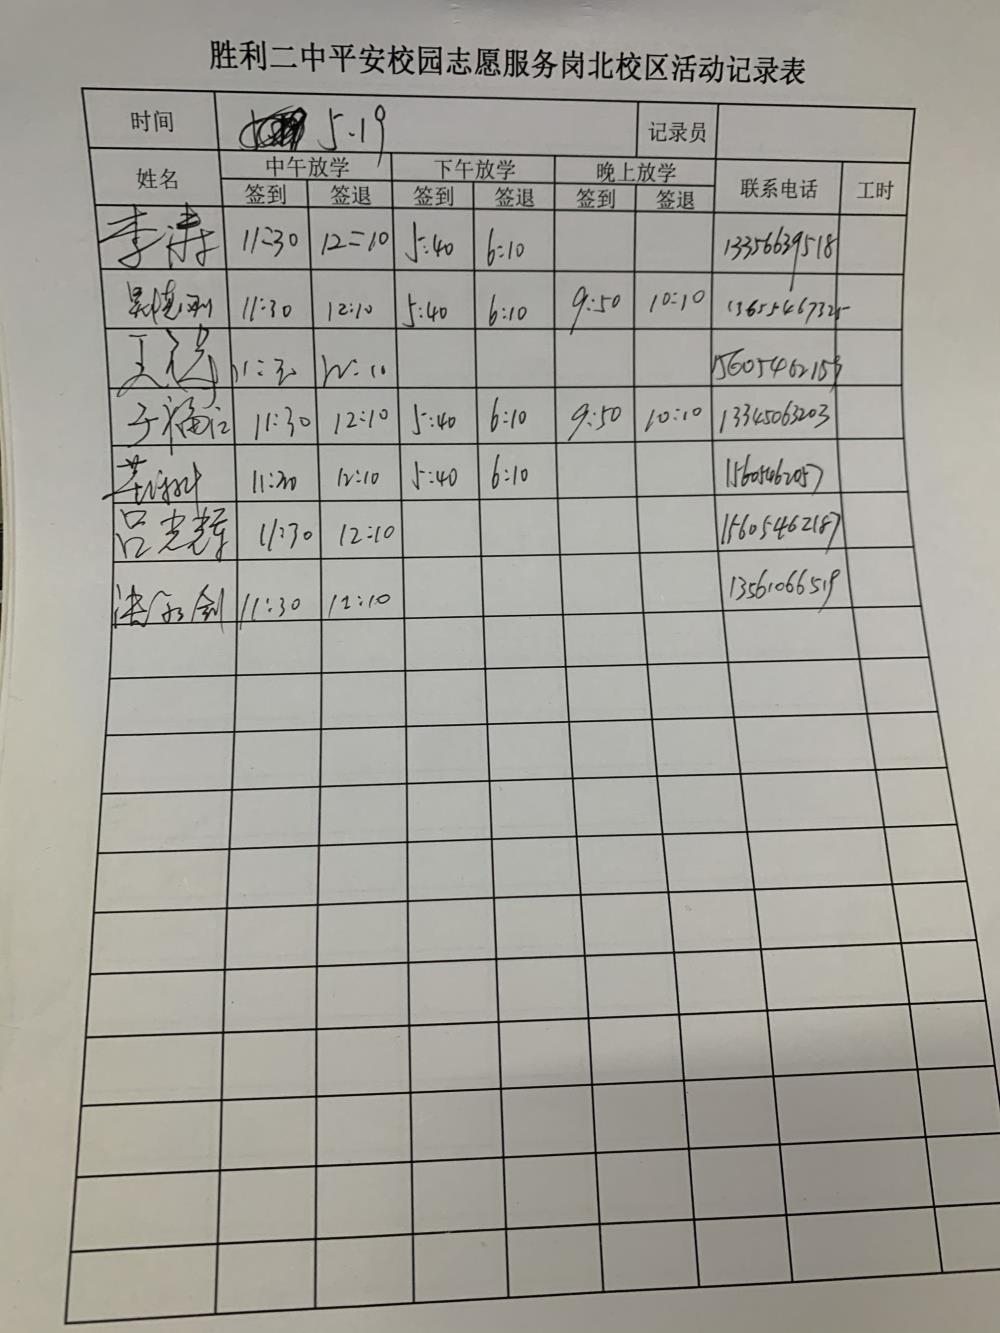 胜利二中平安校园志愿服务岗北校区活动记录表
时间 5.19 记录员
姓名 中午放学 下午放学 晚上放学 联系电话 工时
签到 签退 签到 签退 签到 签退
李涛 11:30 12:10 5:40 6:10 13356639518
11:30 12:10 5:40 6:10 9:50 10:10 13655467325
王 11:30 12:10 15605462159
于福江 11:30 12:10 5:40 6:10 9:50 10:10 13345063203
11:30 12:10 5:40 6:10 15605462057
吕光辉 11:30 12:10 15605462187
11:30 12:10 13561066519